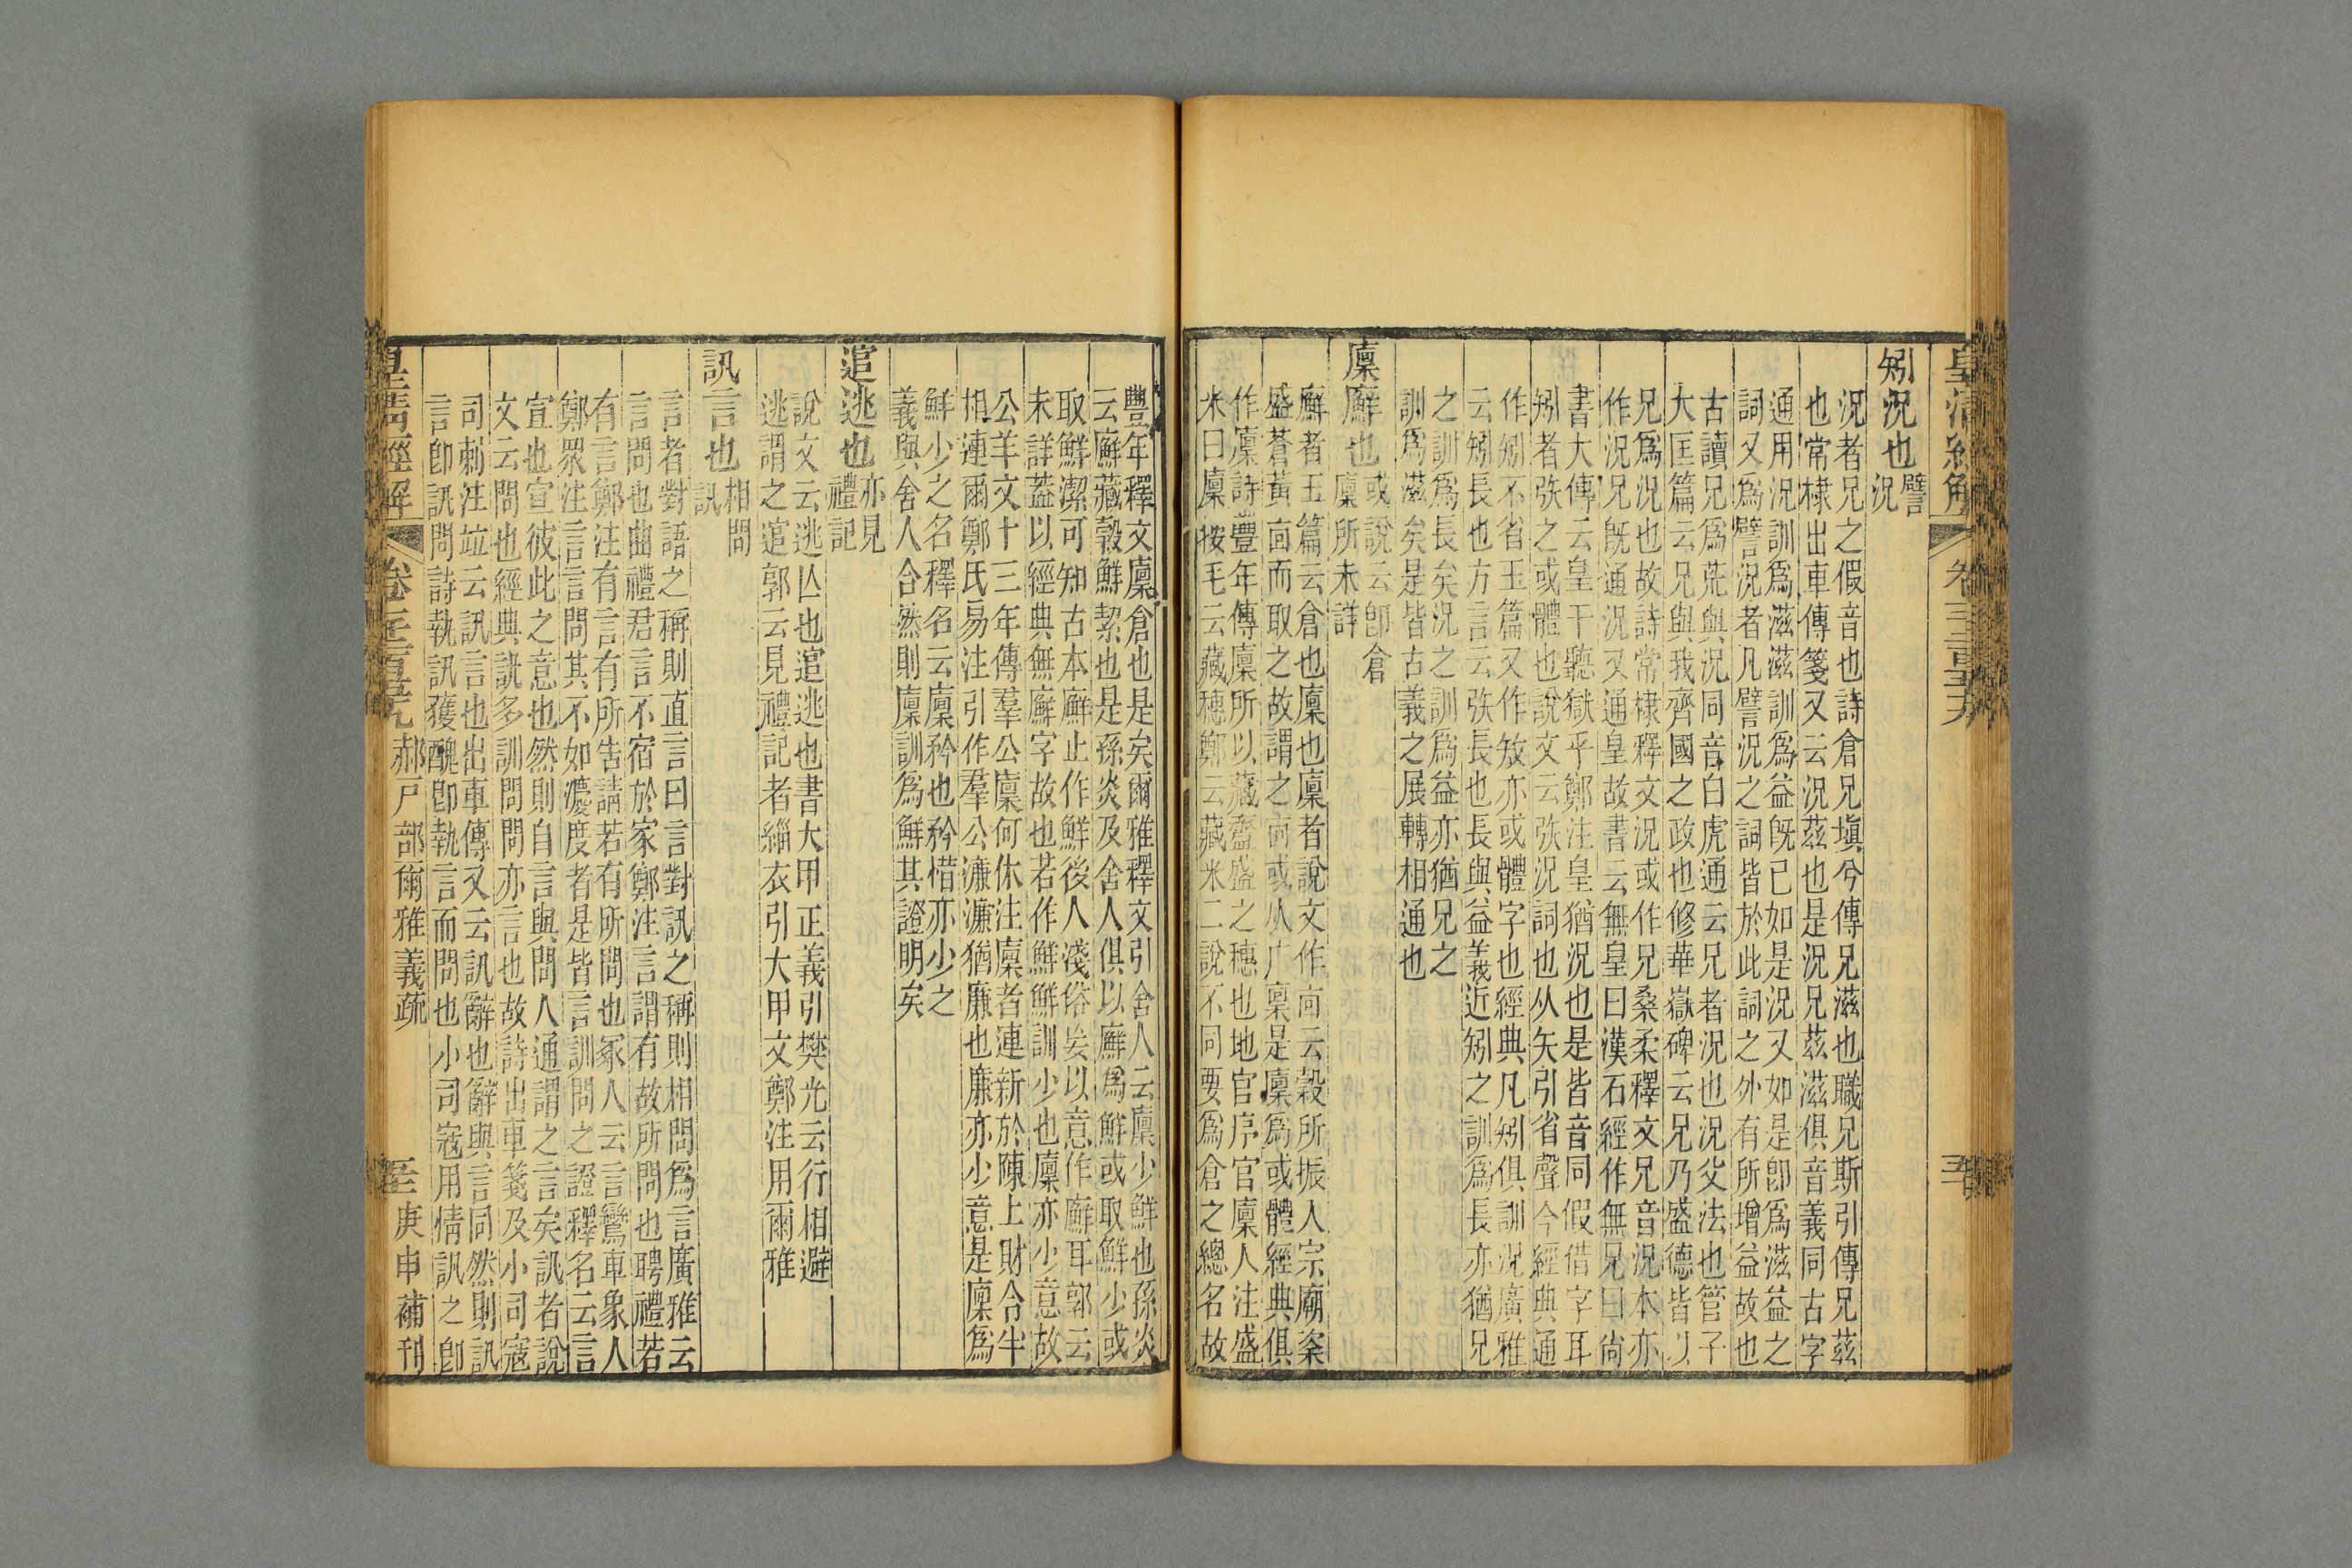 皇清經解
卷一千二百五十九
矧況也譬
況
況者兄之假音也詩倉兄塡兮傳兄滋也職兄斯引傳兄茲
也常棣出車傳箋又云況茲也是況兄茲滋俱音義同古字
通用況訓爲滋滋訓爲益旣已如是況又如是卽爲滋益之
詞又爲譬況者凡譬況之詞皆於此詞之外有所增益故也
古讀兄爲荒與況同音白虎通云兄者況也況父法也管子
大匡篇云兄與我齊國之政也修華嶽碑云兄乃盛德皆以
兄爲況也故詩常棣釋文況或作兄桑柔釋文兄音況本亦
作況兄旣通況又通皇故書云無皇曰漢石經作無兄曰尙
書大傳云皇于聽獄乎鄭注皇猶況也是皆音同假借字耳
矧者矤之或體也說文云矤況詞也从矢引省聲今經典通
作矧不省玉篇又作㪨亦或體字也經典凡矧俱訓況廣雅
云矧長也方言云矤長也長與益義近矧之訓爲長亦猶兄
之訓爲長矣況之訓爲益亦猶兄之
訓爲滋矣是皆古義之展轉相通也
廩廯也或說云卽倉
廩所未詳
廯者玉篇云倉也廩也廩者說文作㐭云穀所振入宗廟粢
盛蒼黃㐭而取之故謂之㐭或从广廩是廩爲或體經典俱
作廩詩豐年傳廩所以藏齍盛之穗也地官序官廩人注盛
米曰廩按毛云藏穗鄭云藏米二說不同要爲倉之總名故
豐年釋文廩倉也是矣爾雅釋文引舍人云廩少鮮也孫炎
云廯藏穀鮮絜也是孫炎及舍人俱以廯爲鮮或取鮮少或
取鮮潔可知古本廯止作鮮後人淺俗妄以意作廯耳郭云
未詳蓋以經典無廯字故也若作鮮鮮訓少也廩亦少意故
公羊文十三年傳羣公廩何休注廩者連新於陳上財合半
相連爾鄭氏易注引作羣公濂濂猶廉也廉亦少意是廩爲
鮮少之名釋名云廩矜也矜惜亦少之
義與舍人合然則廩訓爲鮮其證明矣
逭逃也亦見
禮記
說文云逃亾也逭逃也書大甲正義引樊光云行相避
逃謂之逭郭云見禮記者緇衣引大甲文鄭注用爾雅
訊言也相問
訊
言者對語之稱則直言曰言對訊之稱則相問爲言廣雅云
言問也曲禮君言不宿於家鄭注言謂有故所問也聘禮若
有言鄭注有言有所告請若有所問也冢人云言鸞車象人
鄭眾注言言問其不如灋度者是皆言訓問之證釋名云言
宣也宣彼此之意也然則自言與問人通謂之言矣訊者說
文云問也經典訊多訓問問亦言也故詩出車箋及小司寇
司刺注竝云訊言也出車傳又云訊辭也辭與言同然則訊
言卽訊問詩執訊獲醜卽執言而問也小司寇用情訊之卽
皇清經解
卷一千二百五十九
郝戸部爾雅義疏
庚申補刊